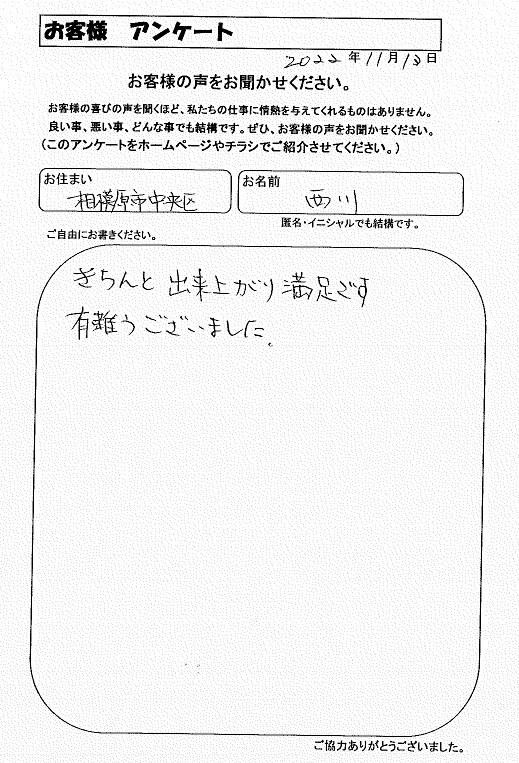 お客様 アンケート
2022年11月13日
お客様の声をお聞かせください。
お客様の喜びの声を聞くほど、私たちの仕事に情熱を与えてくれるものはありません。
良い事、悪い事、どんな事でも結構です。ぜひ、お客様の声をお聞かせください。
(このアンケートをホームページやチラシでご紹介させてください。)
お住まい
相模原市中央区
お名前
西川
匿名・イニシャルでも結構です。
ご自由にお書きください。
きちんと出来上がり満足です
有難うございました。
ご協力ありがとうございました。